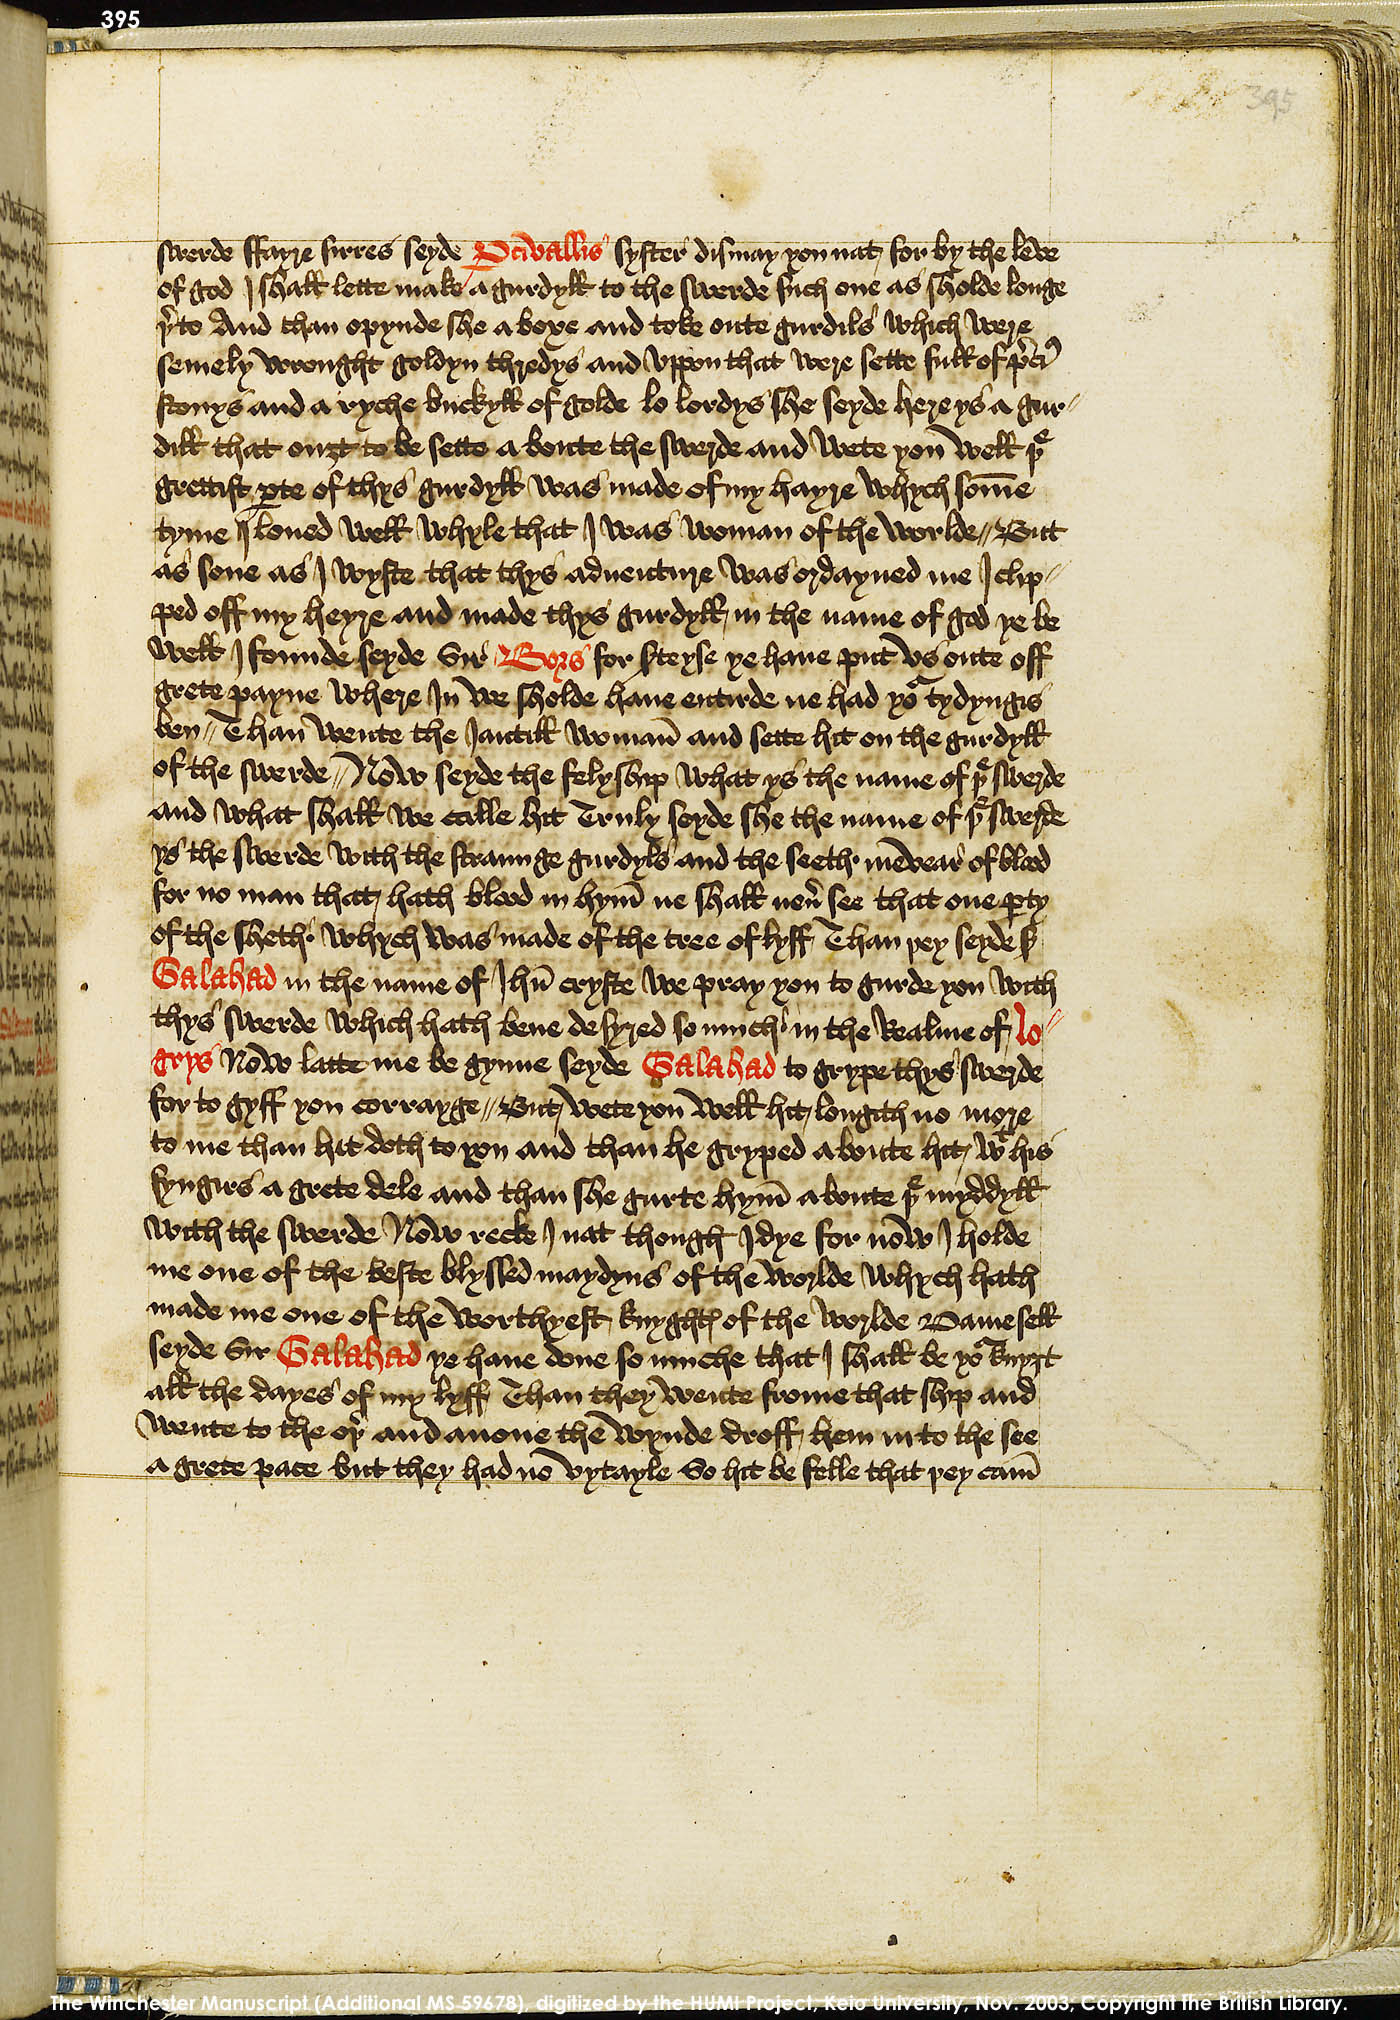 395
395
swerde ffayre sirres seyde Pcivallis syster dismay you nat for by the leve
of god I shall lette make a gurdyll to the swerde such one as sholde longe
þto And than opynde she a boxe and toke oute gurdils which were
semely wrought goldyn thredys and vppon that were sette full of p̃cio
stonys and a ryche buckyll of golde lo lordys she seyde here ys a gur//
dill that ouzt to be sette a boute the swerde and wete you well þe
grettist pte of thys gurdyll was made of my hayre whych som̄e
tyme I loued well whyle that I was woman of the worlde // But
as sone as I wyste that thys adventure was ordayned me I clip//
ped off my heyre and made thys gurdyll in the name of god ye be
well I founde seyde Sir Bors for s̃teyse ye haue put vs oute off
grete payne where In we sholde haue entirde ne had yor tydyngis
ben // Than wente the Iantill woman̄ and sette hit on the gurdyll
of the swerde // Now seyde the felyship what ys the name of þe swerde
and what shall we calle hit Truly seyde she the name of þe swerde
ys the swerde with the straunge gurdyls and the seeth mēvear of blood
for no man that hath blood in hym̄ ne shall neũ see that one pty
of the sheth whych was made of the tree of lyff Than þey seyde to
Galahad in the name of Ihũ cryste we pray you to gurde you with
thys swerde which hath bene desyred so much in the Realme of lo//
grys Now latte me be gynne seyde Galahad to grype thys swerde
for to gyff you corrayge // But wete you well hit longith no more
to me than hit doth to you and than he gryped a boute hit wt his
fyngirs a grete dele and than she gurte hym̄ a boute þe myddyll
with the swerde Now recke I nat though I dye for now I holde
me one of the beste blyssed maydyns of the worlde whych hath
made me one of the worthyest knyghts of the worlde Damesell
seyde Sir Galahad ye haue done so muche that I shall be yor knyzt
all the dayes of my lyff Than they wente frome that ship and
wente to the oþ and anone the wynde droff hem in to the see
a grete pace but they had no vytayle So hit be felle that þey cam̄
The Winchester Manuscript (Additional MS 59678), digitized by the HUMI Project, Keio University, Nov. 2003, Copyright The British Library.